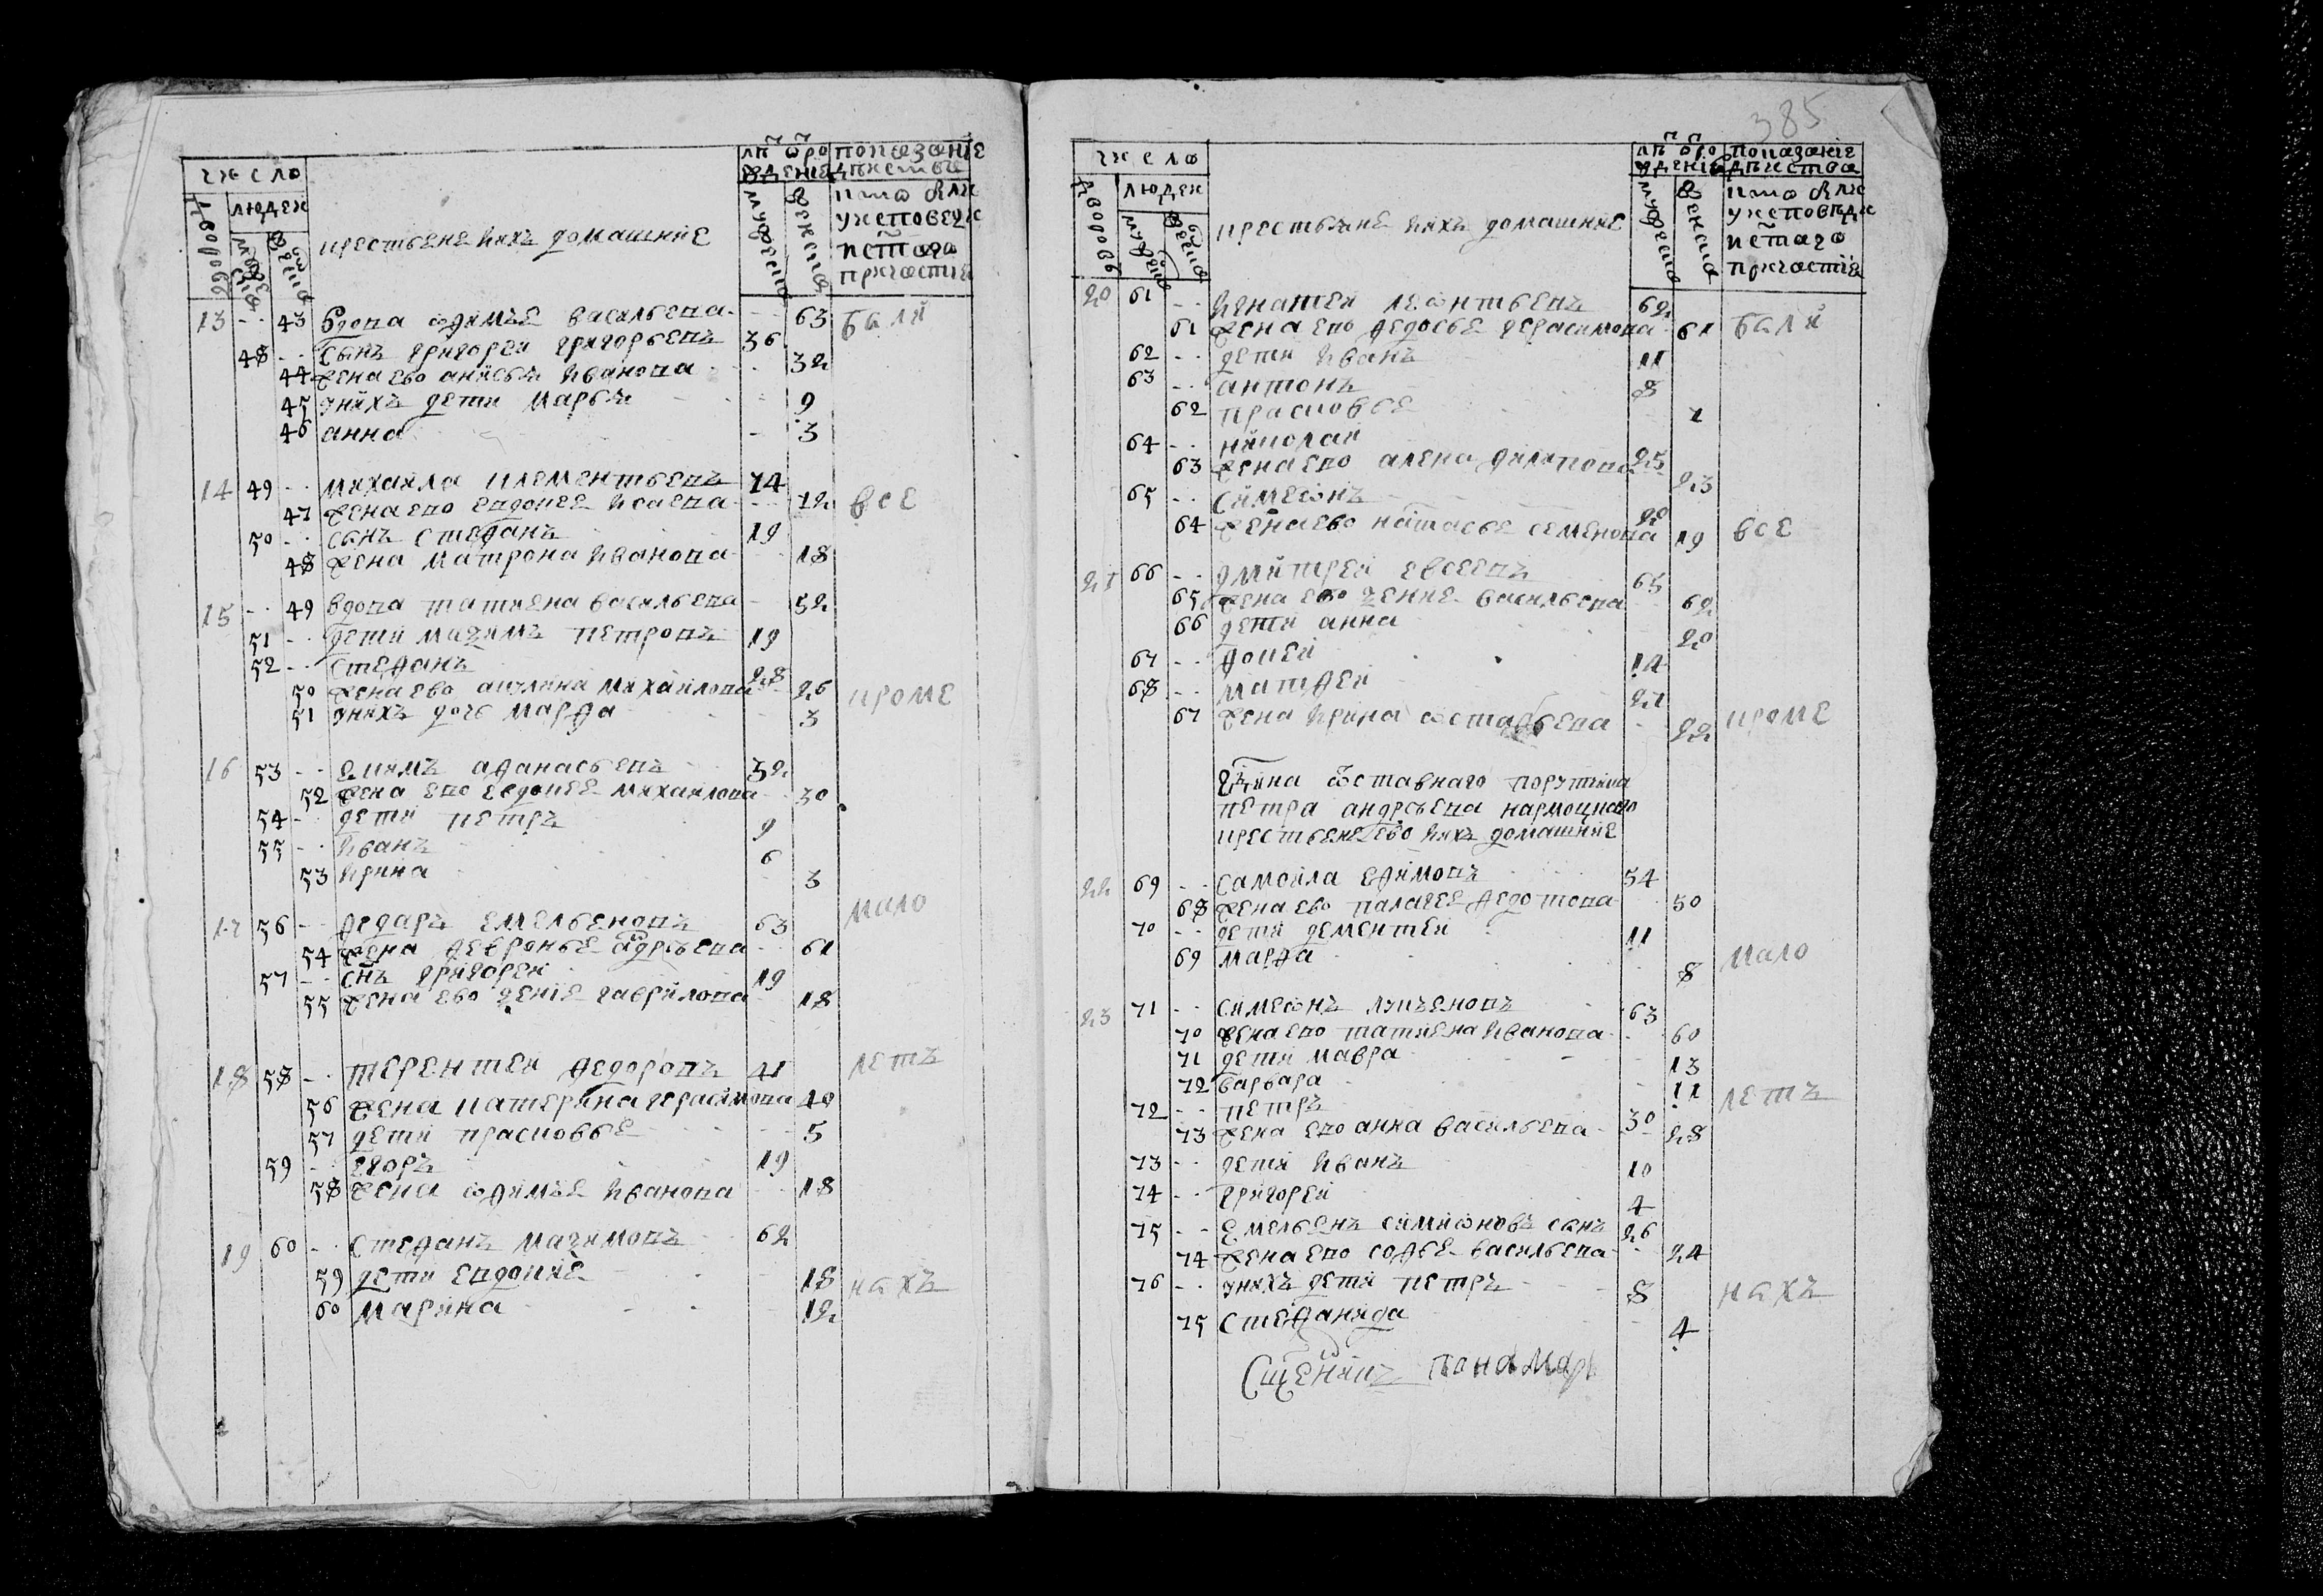 число
дворовъ
людей
мужеска
женска
крестьяне ихъ домашние
лѣ ѿ ро
ждения
мужеска
женска
показание
дѣиства
кто былъ
у исповеди
и стаго
причастия
13 -- 43 вдова афимъе василева -- 63 были
48 -- сынъ григореи григорьевъ 36
44 жена ево анисья иванова 32
45 у нихъ дети марья 9
46 анна 3
14 49 -- михаила клементьевъ 74
47 жена ево евдокее исаева 72 все
50 -- сынъ стефанъ 19
48 жена матрона иванова 18
15 -- 49 вдова татияна василева 52
51 -- дети мазимъ петровъ 19
52 -- стефанъ 28
50 жена ево акулина михаилова 26 кроме
51 у нихъ дочь марфа 3
16 53 -- екимъ афанасьевъ 32
52 жена ево евдокее михаилова 30
54 -- дети петръ 9
55 -- иванъ 6
53 ирина 3
мало
17 56 -- федаръ емельеновъ 63
54 жена февронье адреева 61
57 -- снъ григореи 19
55 жена ево зение гаврилова 18
летъ
18 58 -- терентеи федоровъ 41
56 жена катерина герасимова 40
57 дети прасковье 5
59 -- егоръ 19
58 жена афимъе иванова 18
19 60 -- стефанъ мазимовъ 62
59 дети евдокие 18 ныхъ
60 марина 12
385
число
дворовъ
людей
мужеска
женска
крестьяне ихъ домашние
лѣ ѿ ро
ждения
мужеска
женска
показание
дѣиства
кто былъ
у исповѣди
и стаго
причастия
20 61 -- игнатеи леонтьевъ 62
61 жена ево федосье герасимова 61 были
62 -- дети иванъ 11
63 -- антонъ 8
62 прасковье 7
64 -- николаи 25
63 жена ево алена филипова 23
65 -- симеонъ 20
64 жена ево настасье семенова 19 все
21 66 -- дмитреи евсеевъ 65
65 жена ево зение василева 62
66 дети анна 20
67 -- фокеи 14
68 -- матфеи 27
67 жена ирина остафьева 22 кроме
отставнаго порутчика
петра андреева нармоцкаго
крестьяне ево ихъ домашние
22 69 -- самоила ефимовъ 54
68 жена ево палагее федотова 50
70 -- дети дементеи 11
69 марфа 8 мало
23 71 -- симеонъ лукьеновъ 63
70 жена ево татияна иванова 60
71 дети мавра 13
72 варвара 11
летъ
72 -- петръ 30
73 жена ево анна василева 28
73 -- дети иванъ 10
74 -- григореи 4
75 -- емельенъ симионовъ сынъ 26
74 жена ево софье василева 24
76 -- у нихъ дети петръ 8 ныхъ
75 стефанида 4
Сщеникъ понамарь